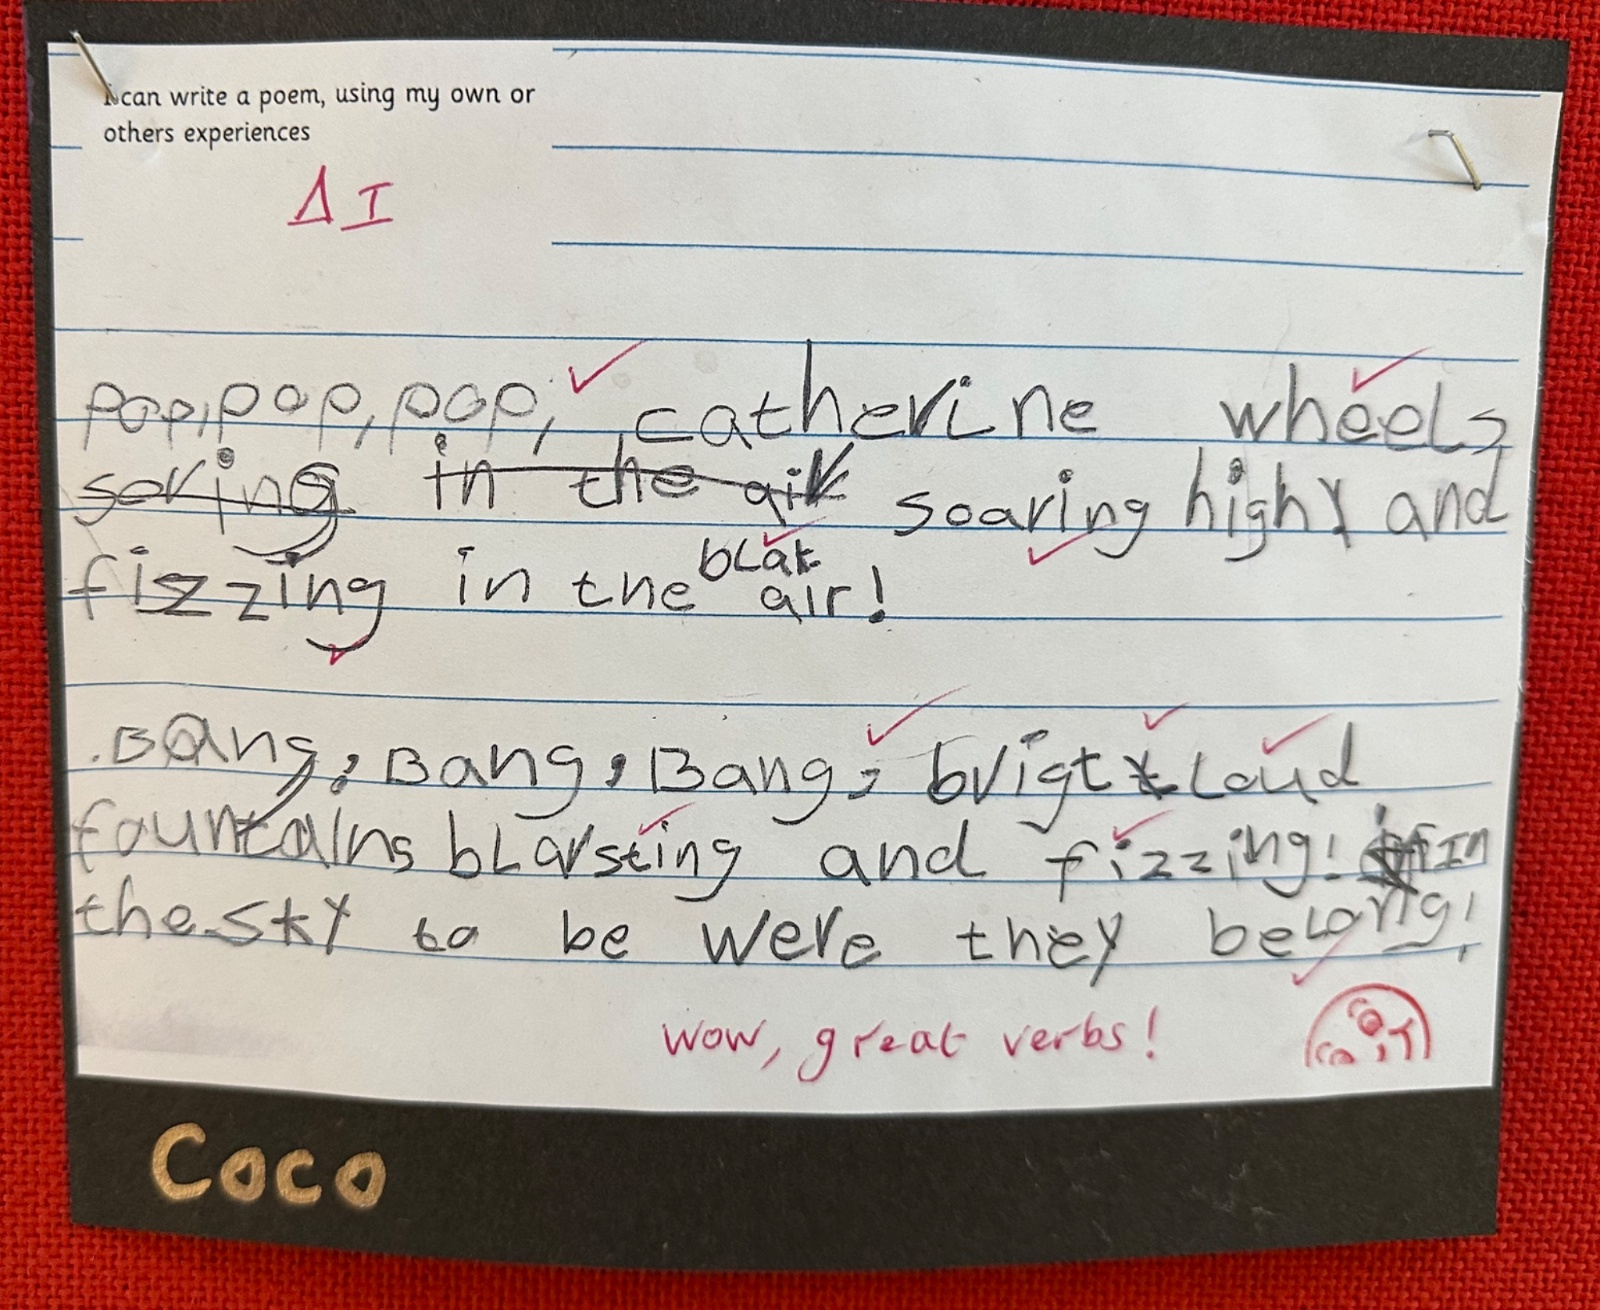 I can write a poem, using my own or
others experiences
Δ I
pop, pop, pop, catherine wheels
soring in the air soaring high and
blak
fizzing in the air!
Bang, Bang, Bang, brigt Loud
fountains bLarsting and fizzing! In
the sky to be were they belong!
wow, great verbs!
Coco